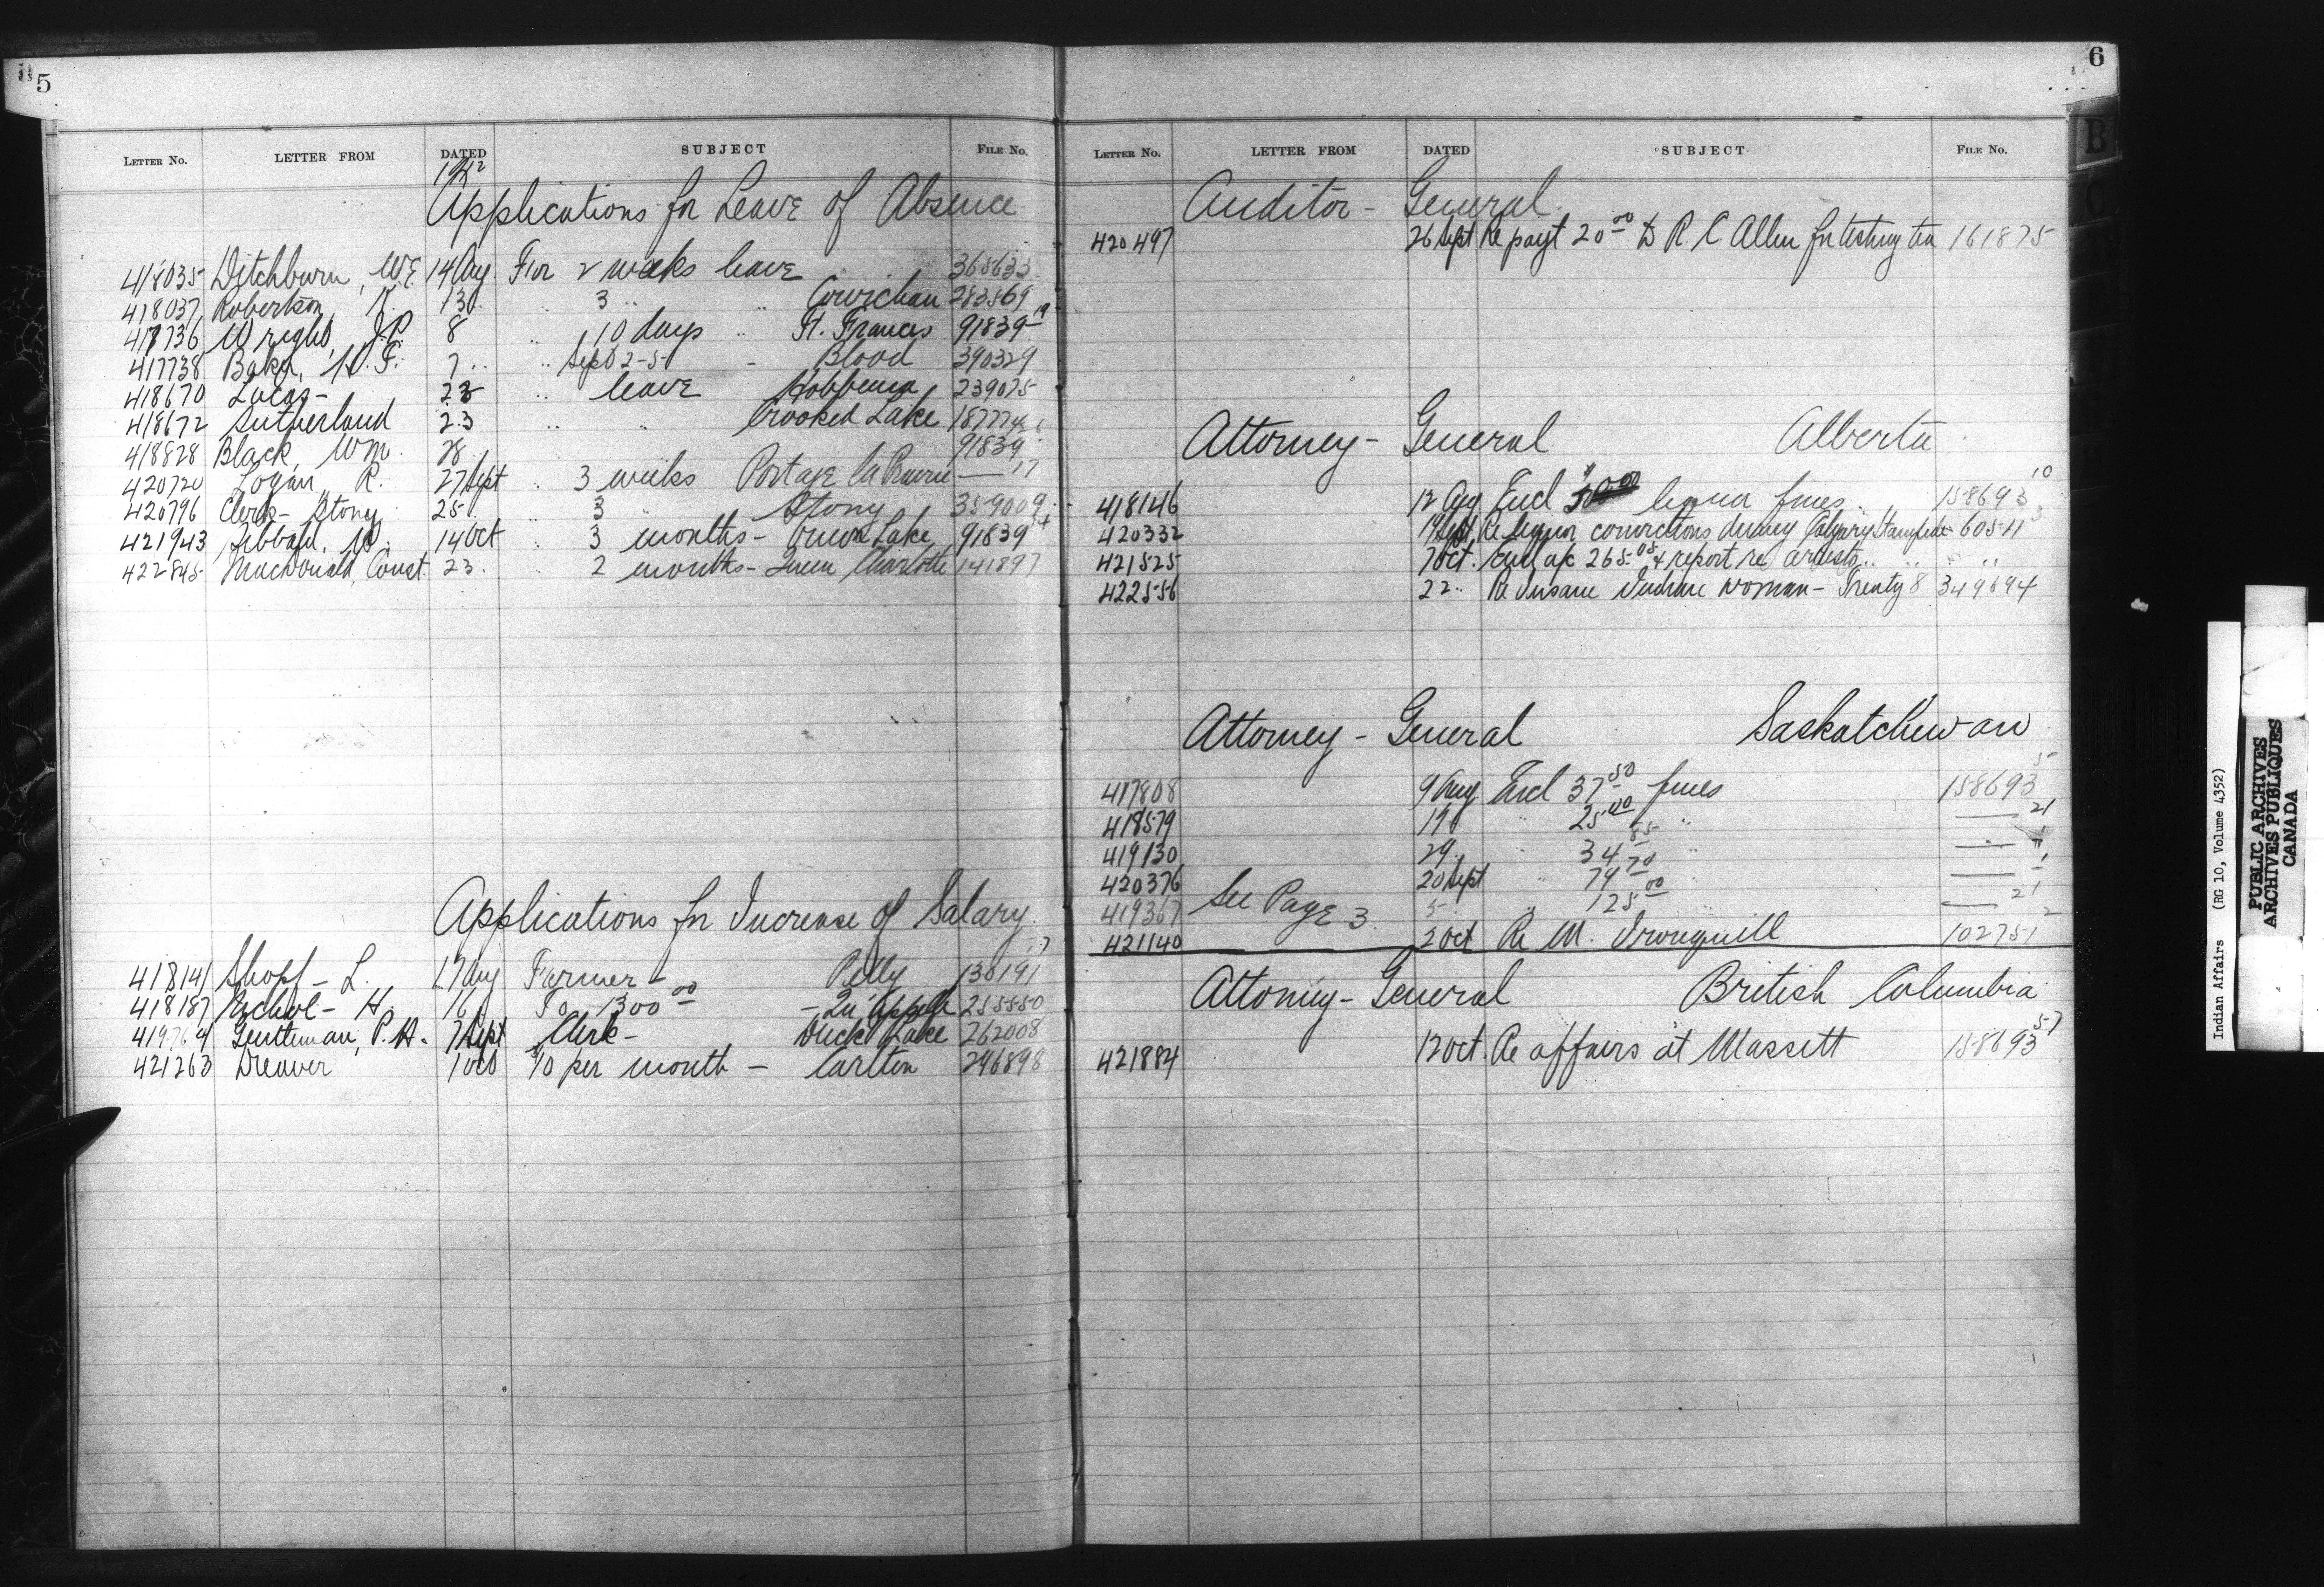 5
LETTER No. LETTER FROM DATED SUBJECT FILE No.
1912
Applications for Leave of Absence
418035 Ditchburn, W.E. 14 Aug. For 2 weeks leave 365633
418037 Robertson 13 .. 3 .. Cowichan 283569
417736 Wright, J.P. 8 .. 10 days .. Ft. Frances 91839-19
417738 Baker, 7 .. .. Sept 2-5 - Blood 390329
418670 Lucas - 23 .. leave Hobbema 239075
418672 Sutherland 23 .. .. Crooked Lake
418828 Black, Wm. 28 91839
420720 Logan R. 27 Sept .. 3 weeks Portage la Prairie — 17
420796 Clerk - Stony 25 .. 3 .. Stony 359009
421943 Sibbald, W. 14 Oct .. 3 months - Onion Lake 91839 14
422845 MacDonald, Const. 23. .. 2 months - Queen Charlotte 141897
Applications for Increase of Salary
418141 Shopf - L. 17 Aug Farmer - Pelly 130191
418187 Nichol - H. 16 To 1300 00 - Qu'Appelle 255550
419764 Gentleman, P.H. 7 Sept Clerk - Duck Lake 262008
421263 Weaver 1 Oct $10 per month - Carlton 246898
6
B
C
LETTER No. LETTER FROM DATED SUBJECT FILE No.
Auditor - General
420497 26 Sept Re payt 20 00 to R. C Allen for testing tea 161875
Attorney - General Alberta
418146 12 Aug Encl $50.00 liquor fines 158693 10
420332 19 Sept Re liquor convictions during Calgary Stampede 60511 3
421525 7 Oct. Encl a/c 265.05 & report re arrests .. ..
422556 22 .. Re Insane Indian woman - Treaty 8 349694
Attorney - General Saskatchewan
417808 9 Aug Encl 37 50 fines 158693 5
418579 19 .. 25 00 .. — 21
419130 29 .. .. 34 85 .. —
420376 20 Sept .. 74 70 .. —
419367 See Page 3 5 .. 125 00 .. — 21
421140 2 Oct Re M. Ironquill 102751 2
Attorney - General British Columbia
421884 12 Oct. Re affairs at Massett 158693 57
Indian Affairs (RG 10, Volume 4352)
PUBLIC ARCHIVES
ARCHIVES PUBLIQUES
CANADA